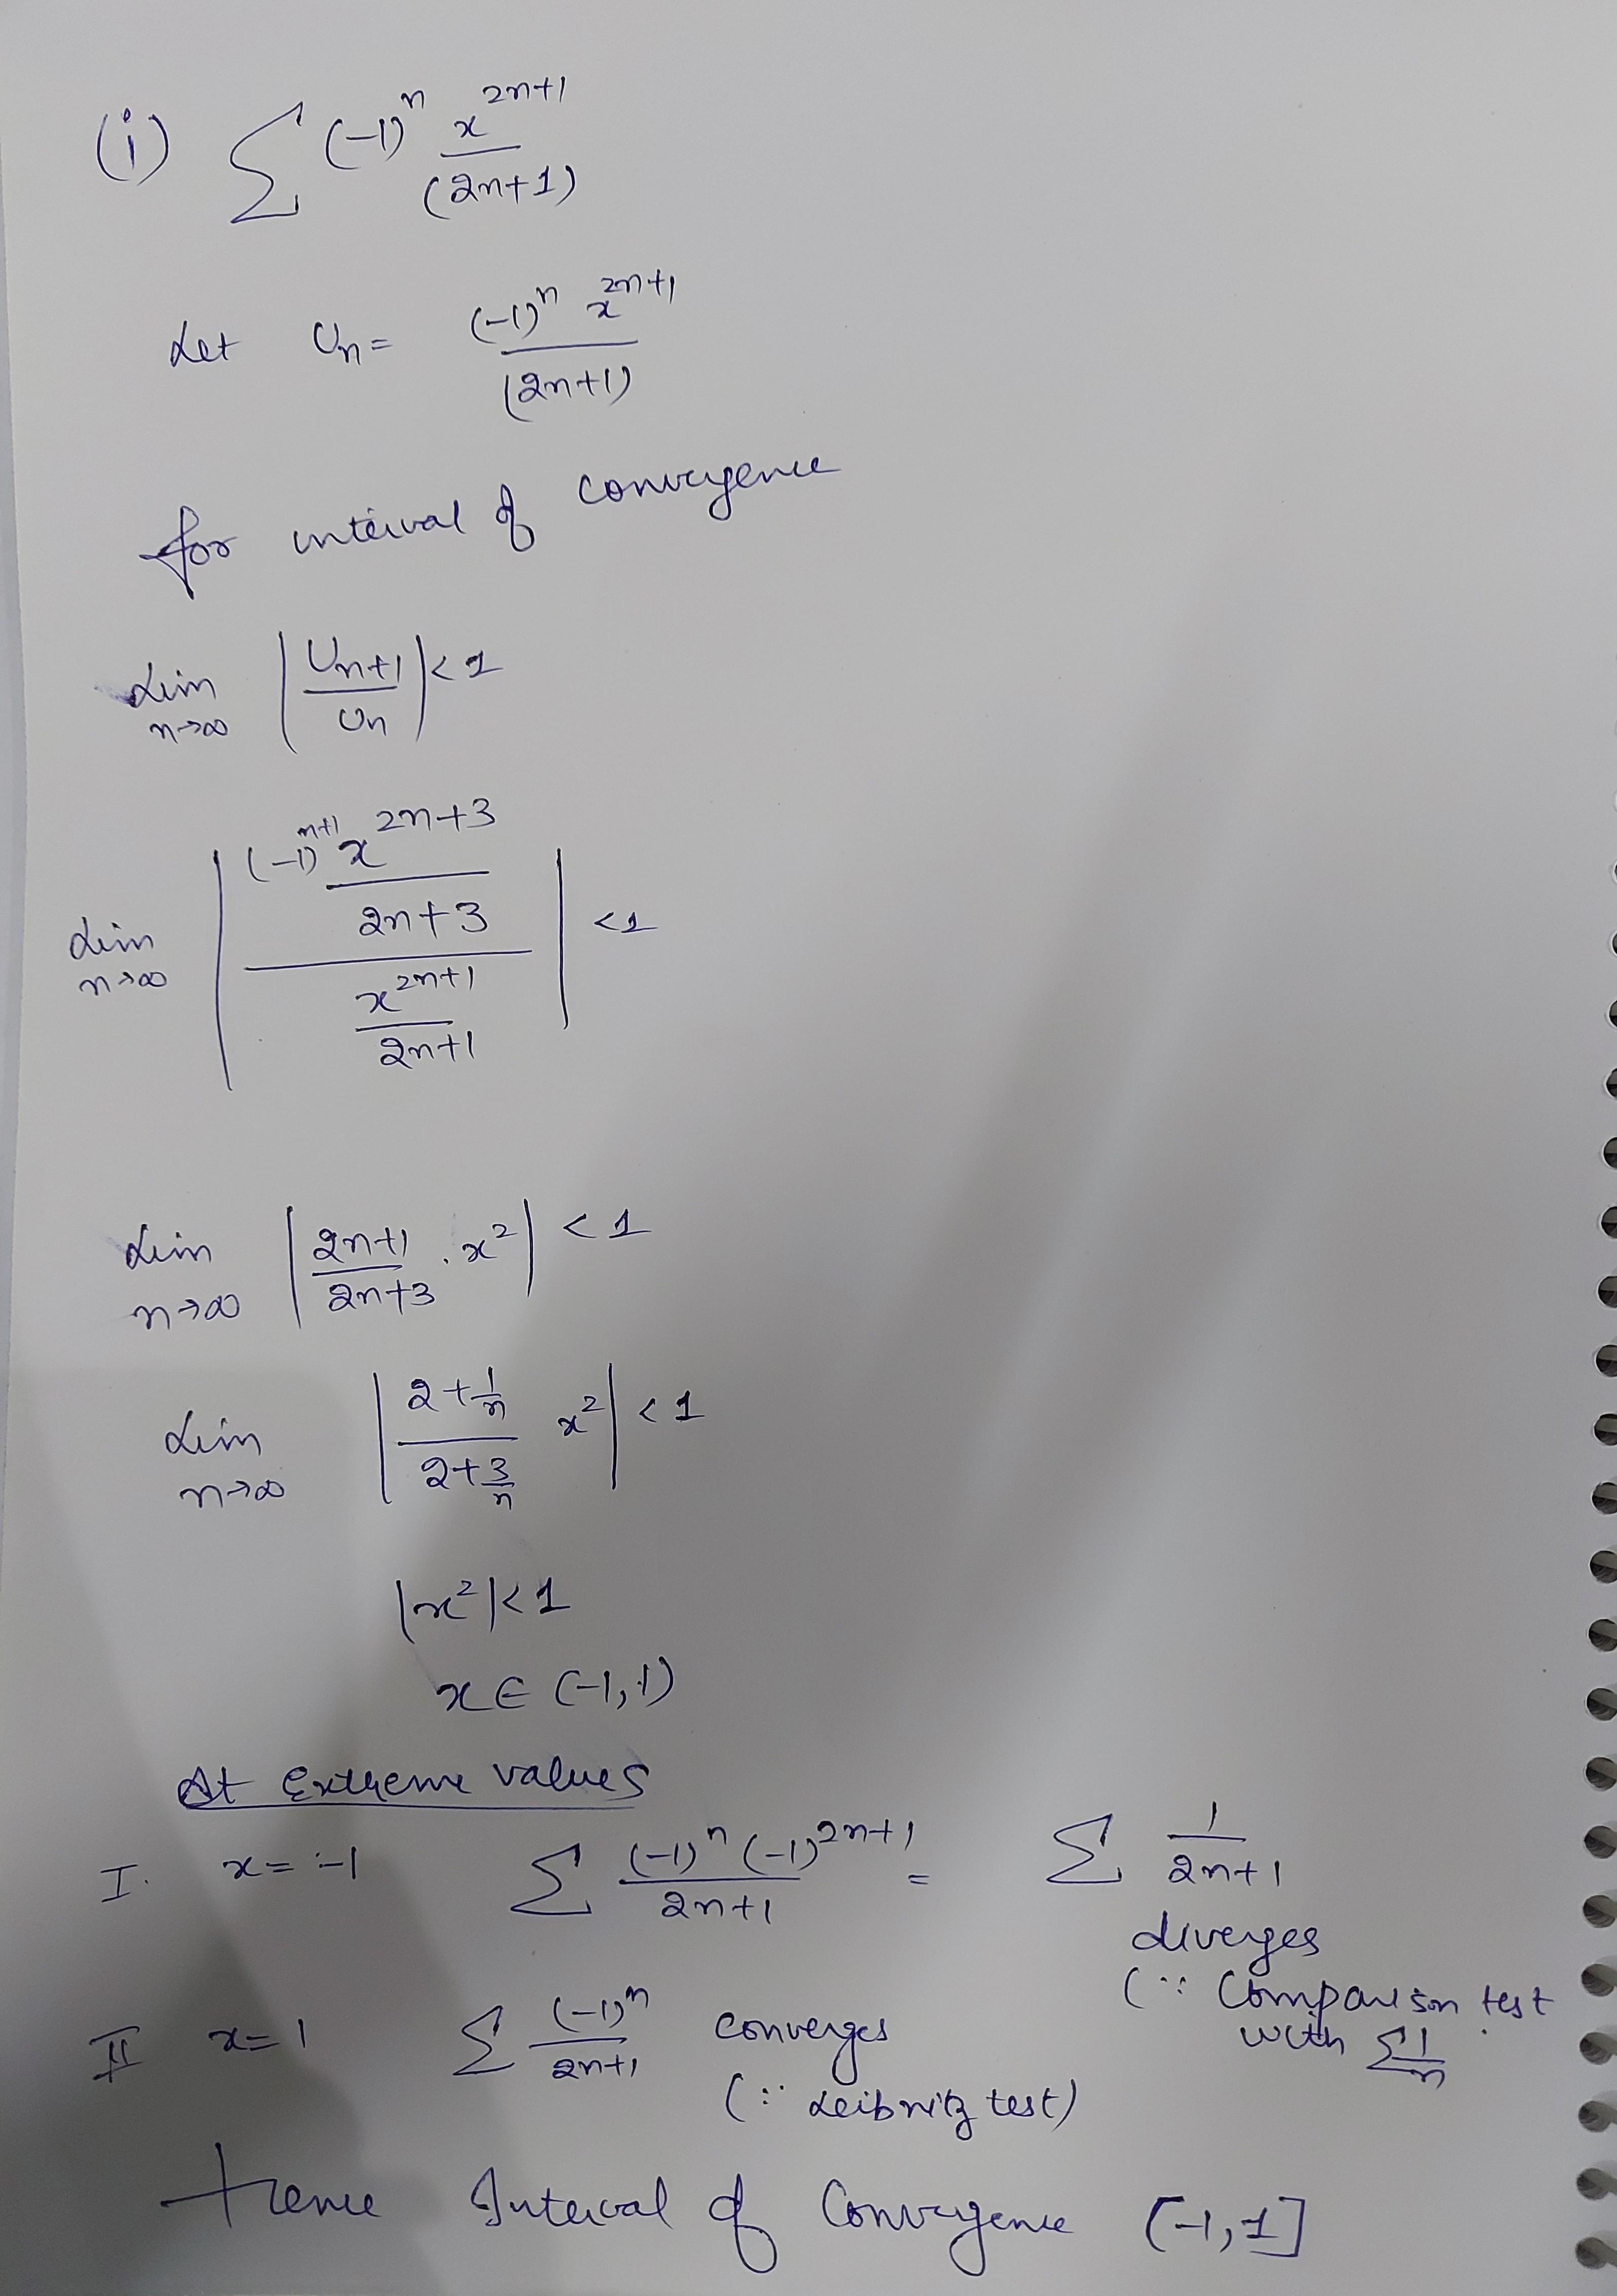 (i) ∑ (-1)^n x^{2n+1} / (2n+1)
Let Un = (-1)^n x^{2n+1} / (2n+1)
for interval of convergence
Lim n→∞ | Un+1 / Un | < 1
Lim n→∞ | ((-1)^{n+1} x^{2n+3} / 2n+3) / (x^{2n+1} / 2n+1) | < 1
Lim n→∞ | 2n+1 / 2n+3 . x^2 | < 1
Lim n→∞ | (2 + 1/n) / (2 + 3/n) x^2 | < 1
|x^2| < 1
x ∈ (-1, 1)
At Extreme values
I. x = -1 ∑ (-1)^n (-1)^{2n+1} / 2n+1 = ∑ 1 / 2n+1
diverges
(∵ Comparison test
with ∑ 1/n
II x = 1 ∑ (-1)^n / 2n+1 converges
(∵ Leibnitz test)
Hence Interval of Convergence (-1, 1]